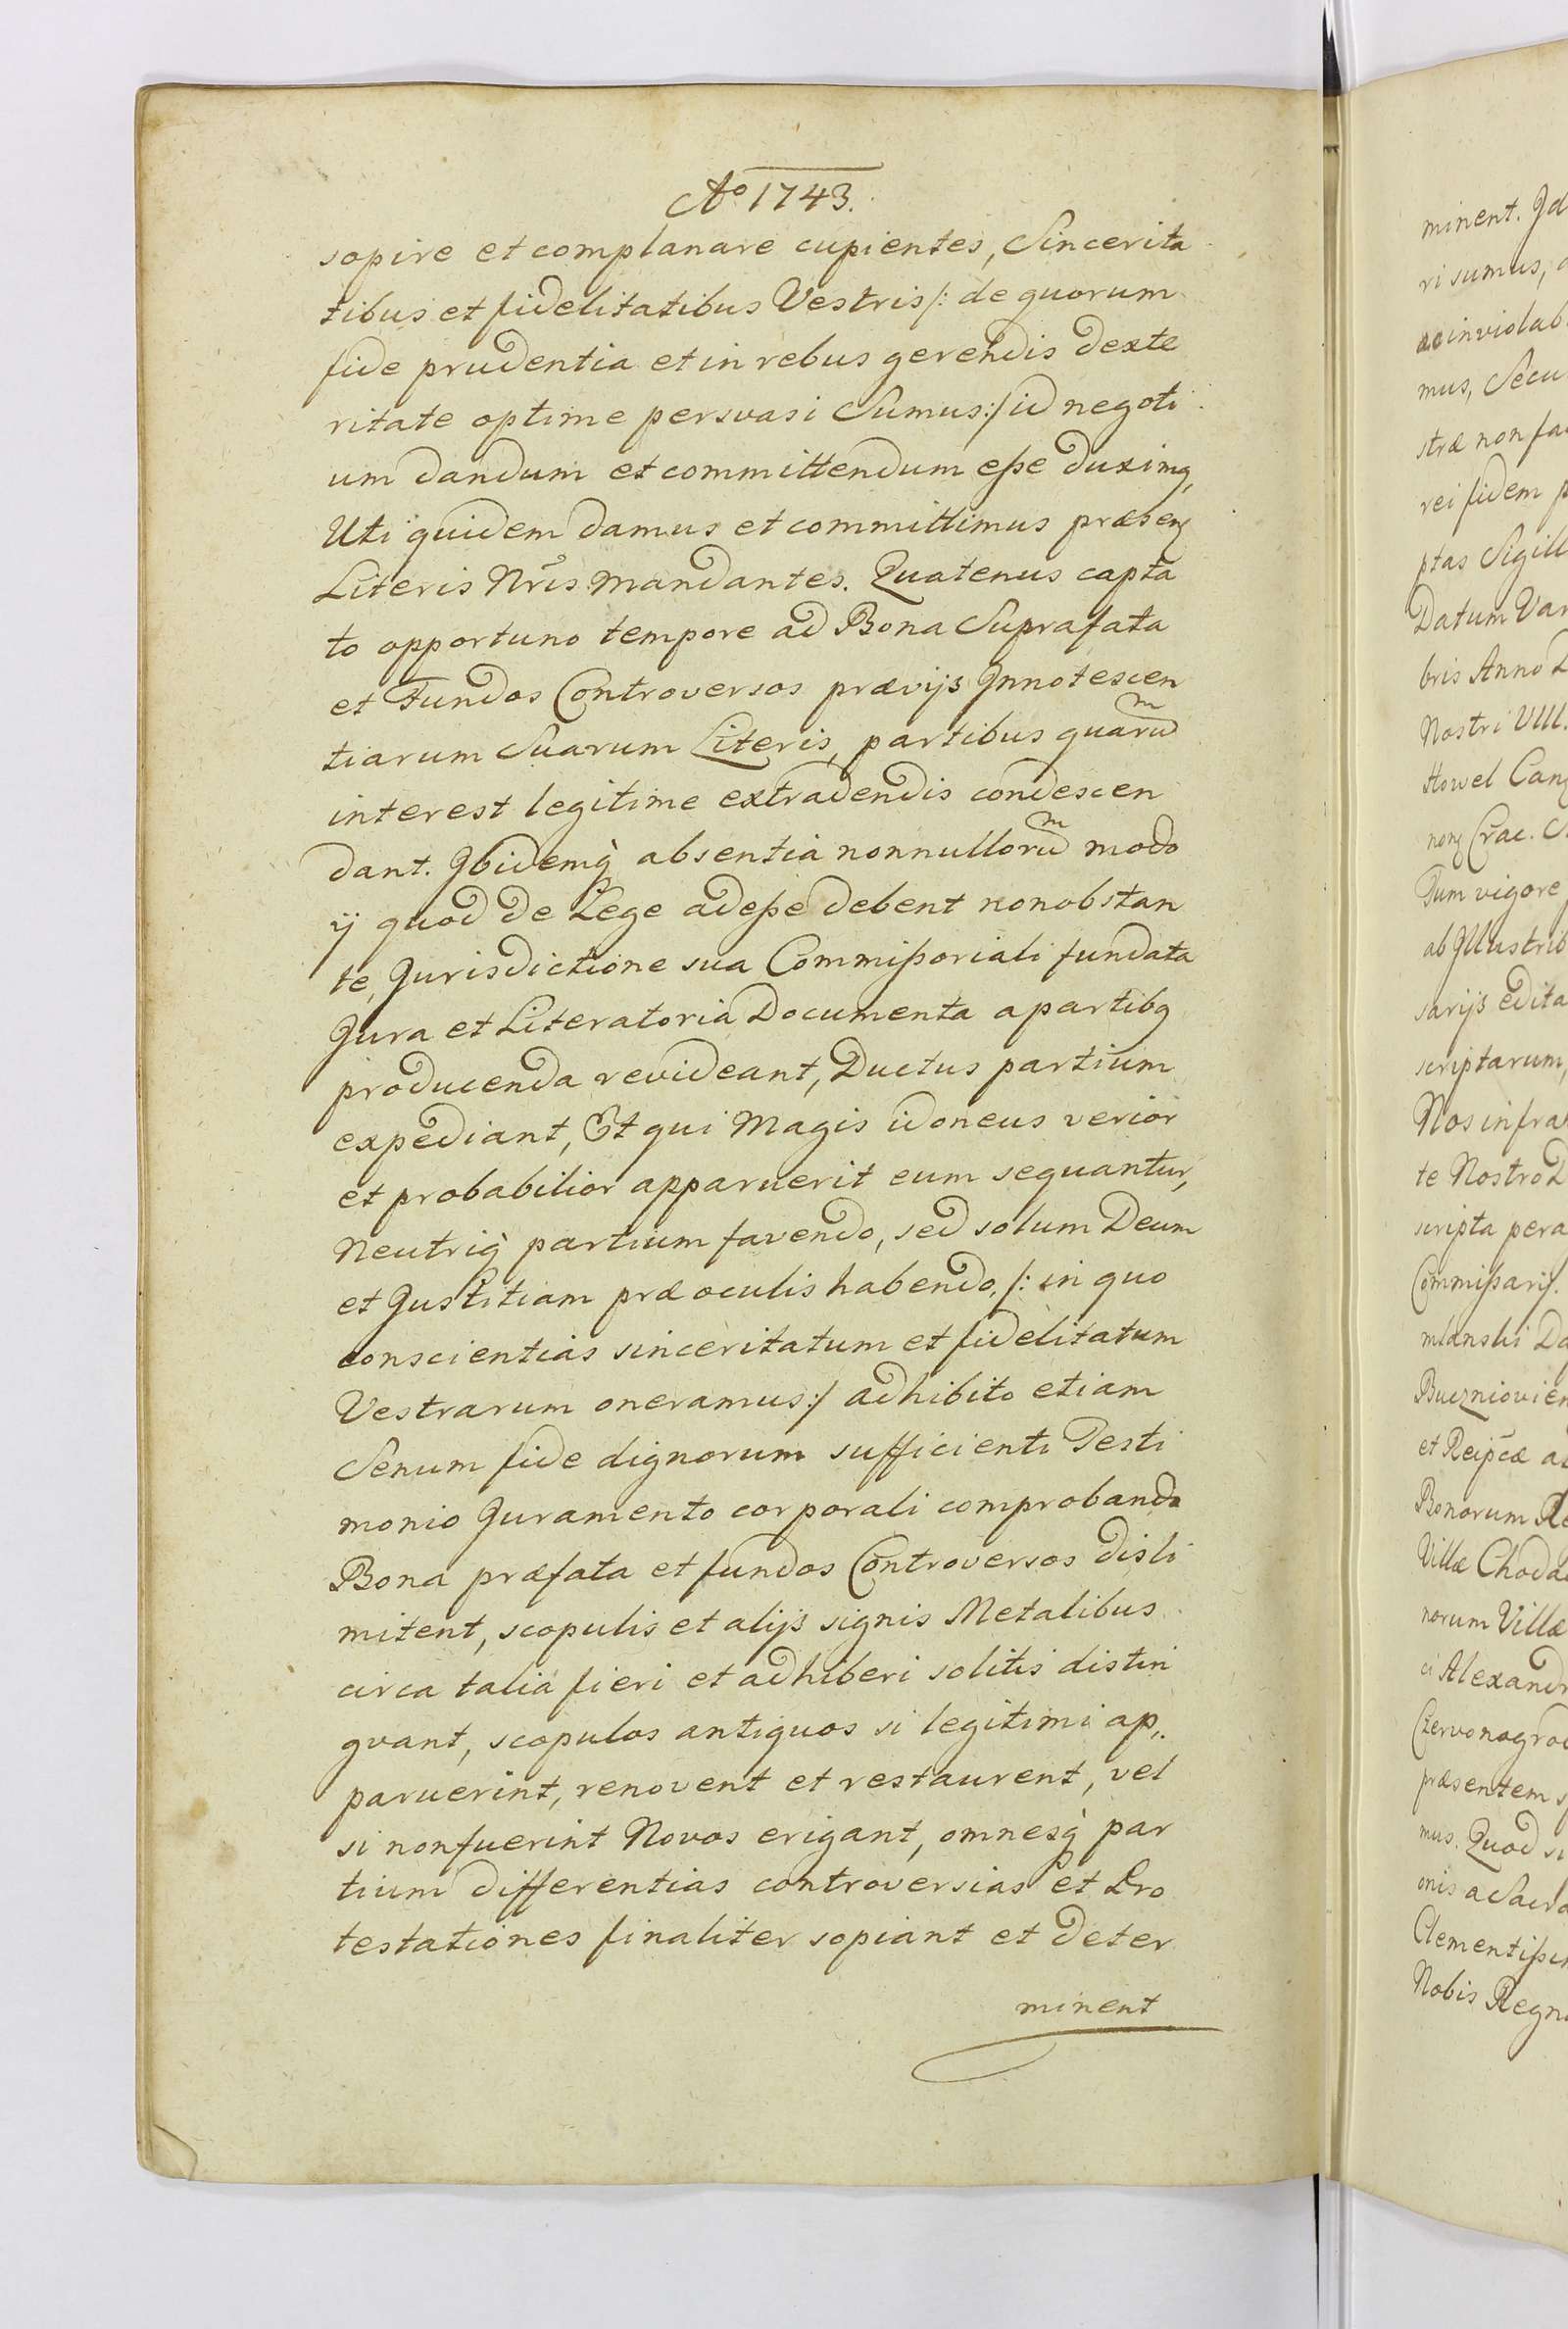 Aº 1743.
sopire et complanare cupientes, Sincerita
tibus et fidelitatibus Vestris /: de quorum
fide prudentia et in rebus gerendis dexte
ritate optime persvasi Sumus :/ id negoti
um dandum et committendum eße duximq,
Uti quidem damus et committimus præsenq
Literis Nris mandantes. Quatenus capta
to opportuno tempore ad Bona Suprafata
et Fundos Controversos prævijs Innotescen
tiarum Suarum Literis, partibus quarum
interest legitime extradendis condescen
dant. Ibidemq absentia nonnullorum modo
ij quod de Lege adeße debent nonobstan
te, Jurisdictione sua Commißoriali fundata
Jura et Literatoria Documenta a partibq
producenda revideant, Ductus partium
expediant, Et qui Magis idoneus verior
et probabilior apparuerit eum sequantur,
Neutriq partium favendo, sed solum Deum
et Justitiam præ oculis habendo, /: in quo
conscientias sinceritatum et fidelitatum
Vestrarum oneramus :/ adhibito etiam
Senum fide dignorum sufficienti Testi
monio Juramento corporali comprobando
Bona præfata et fundos Controversos disli
mitent, scopulis et alijs signis Metalibus
circa talia fieri et adhiberi solitis distin
gvant, scopulos antiquos si legitimi ap,.
paruerint, renovent et restaurent, vel
si non fuerint Novos erigant, omnesq par
tium differentias controversias et Pro
testationes finaliter sopiant et deter
minent
minent. Id
ri sumus,
ac inviolab
mus, Secu
stræ non fa
rei fidem p
ptas Sigill
Datum Var
bris Anno D
Nostri VIII.
Howel Canq
nonq Crac. S
Tum vigore
ab Illustrib
sarijs edita
scriptarum,
Nos infra
te Nostro D
scripta pera
Commißarij.
mlanski Da
Buczniovien
et Reipcæ a
Bonorum Re
Villæ Choda
norum Villæ
ci Alexand
Czervonogrod
præsentem s
mus. Quod si
onis a Sacra
Clementißi
Nobis Regn